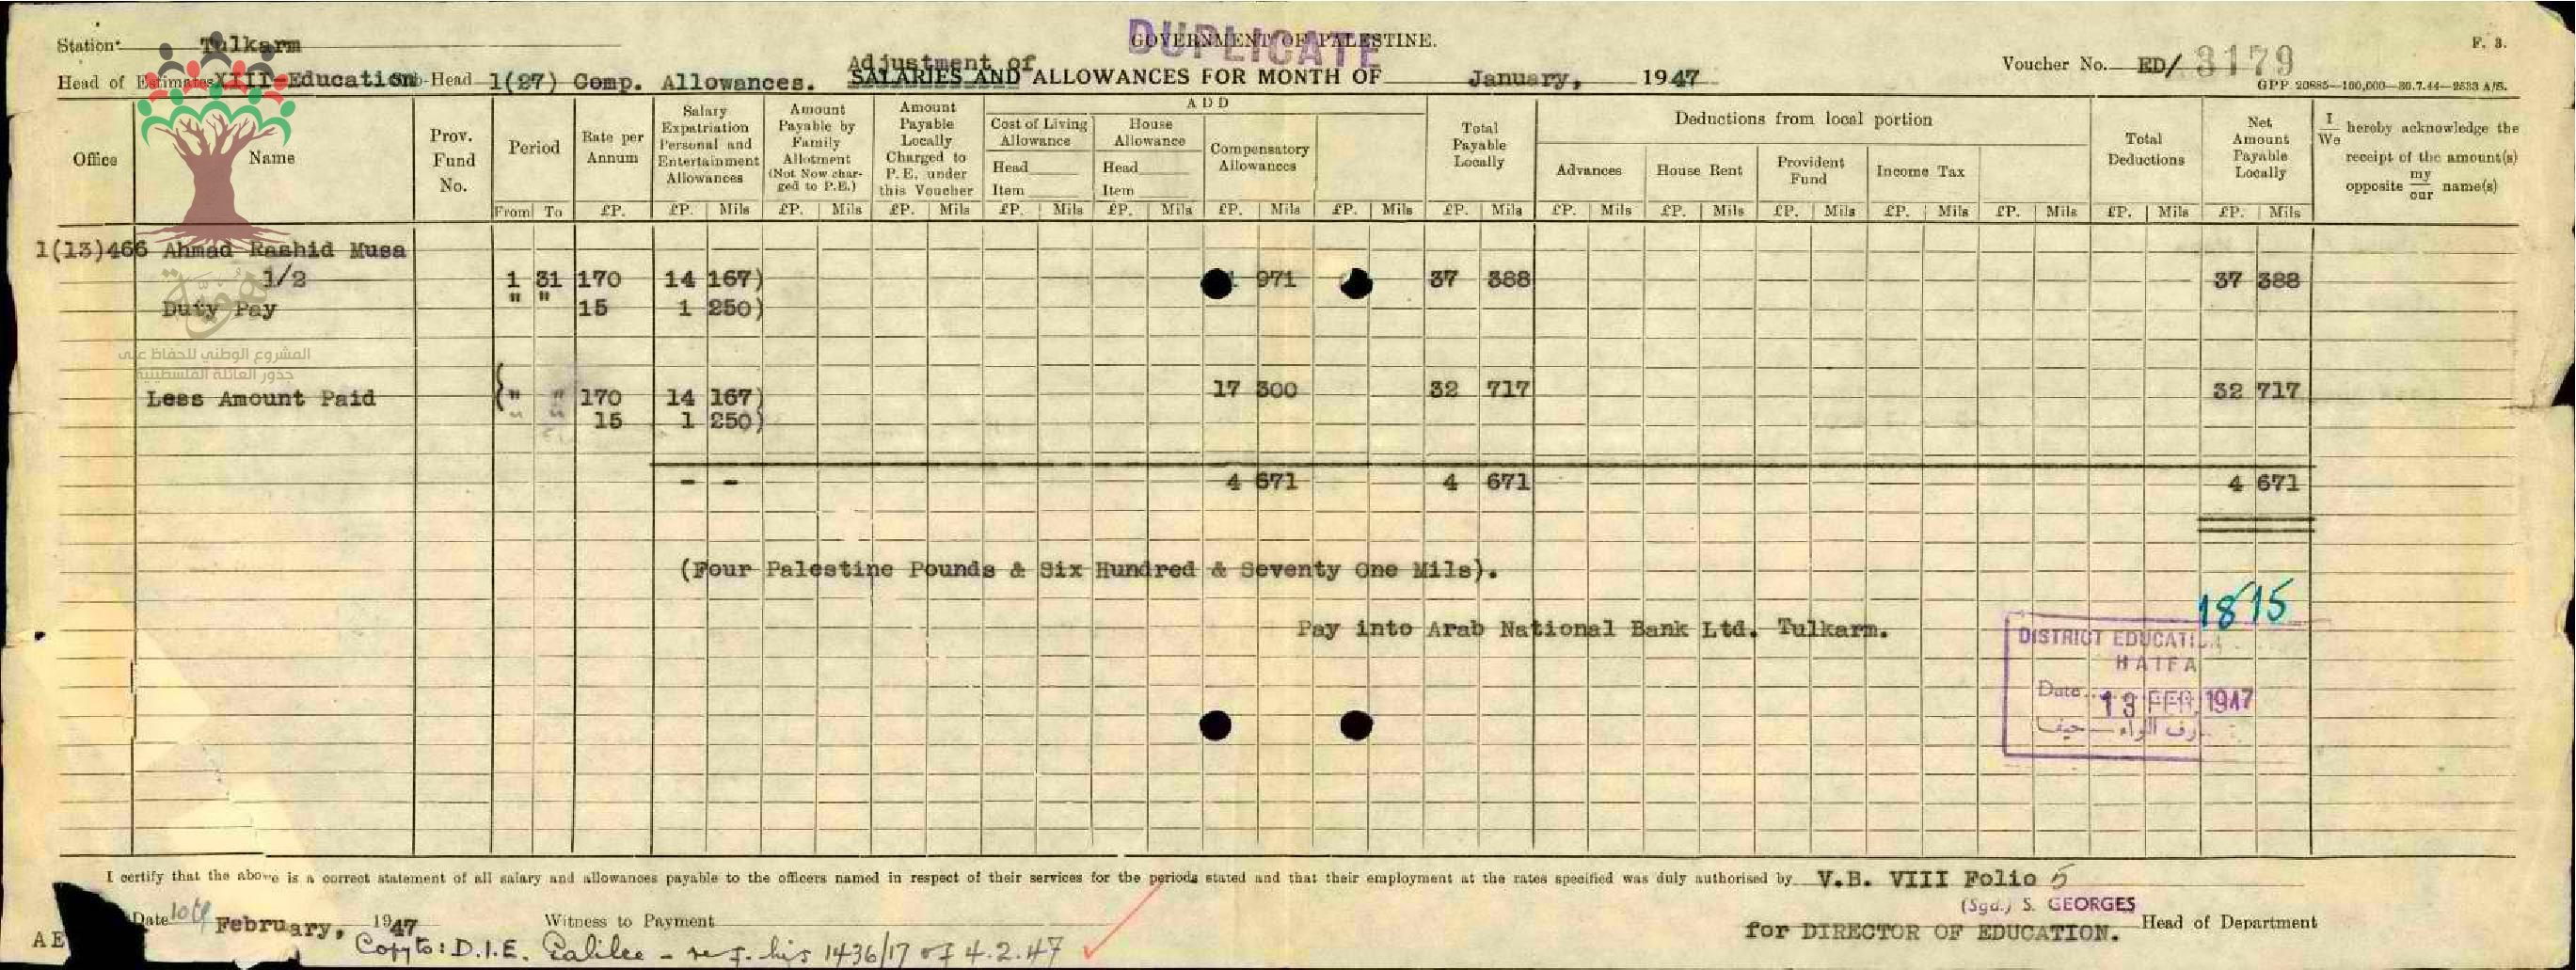 DUPLICATE
GOVERNMENT OF PALESTINE.
F. 3.
Station Tulkarm
Head of Estimates XIII Education Sub-Head 1(27) Comp. Allowances.
Adjustment of
SALARIES AND ALLOWANCES FOR MONTH OF January, 1947
Voucher No. ED/ 3179
GPP 20885—100,000—30.7.44—2533 A/S.
Office
Name
Prov. Fund No.
Period
From To
Rate per Annum
£P.
Salary Expatriation Personal and Entertainment Allowances
£P. Mils
Amount Payable by Family Allotment (Not Now charged to P.E.)
£P. Mils
Amount Payable Locally Charged to P.E. under this Voucher
£P. Mils
ADD
Cost of Living Allowance
Head
Item
£P. Mils
House Allowance
Head
Item
£P. Mils
Compensatory Allowances
£P. Mils
£P. Mils
Total Payable Locally
£P. Mils
Deductions from local portion
Advances
£P. Mils
House Rent
£P. Mils
Provident Fund
£P. Mils
Income Tax
£P. Mils
£P. Mils
Total Deductions
£P. Mils
Net Amount Payable Locally
£P. Mils
I
We hereby acknowledge the
receipt of the amount(s)
opposite my
our name(s)
1(13)466 Ahmad Rashid Musa
1/2 1 31 170 14 167) 971 37 388 37 388
Duty Pay " " 15 1 250)
هُوِيَّة
المشروع الوطني للحفاظ على
جذور العائلة الفلسطينية
Less Amount Paid ( " " 170 14 167) 17 300 32 717 32 717
15 1 250)
- - 4 671 4 671 4 671
(Four Palestine Pounds & Six Hundred & Seventy One Mils).
1815
Pay into Arab National Bank Ltd. Tulkarm.
DISTRICT EDUCATI
HAIFA
Date 13 FEB 1947
رف اللواء — حيفا
I certify that the above is a correct statement of all salary and allowances payable to the officers named in respect of their services for the periods stated and that their employment at the rates specified was duly authorised by V.B. VIII Folio 5
(Sgd.) S. GEORGES
Date 10th February, 1947 Witness to Payment
for DIRECTOR OF EDUCATION. Head of Department
AE
Copy to: D.I.E. Galilee - ref. his 1436/17 of 4.2.47